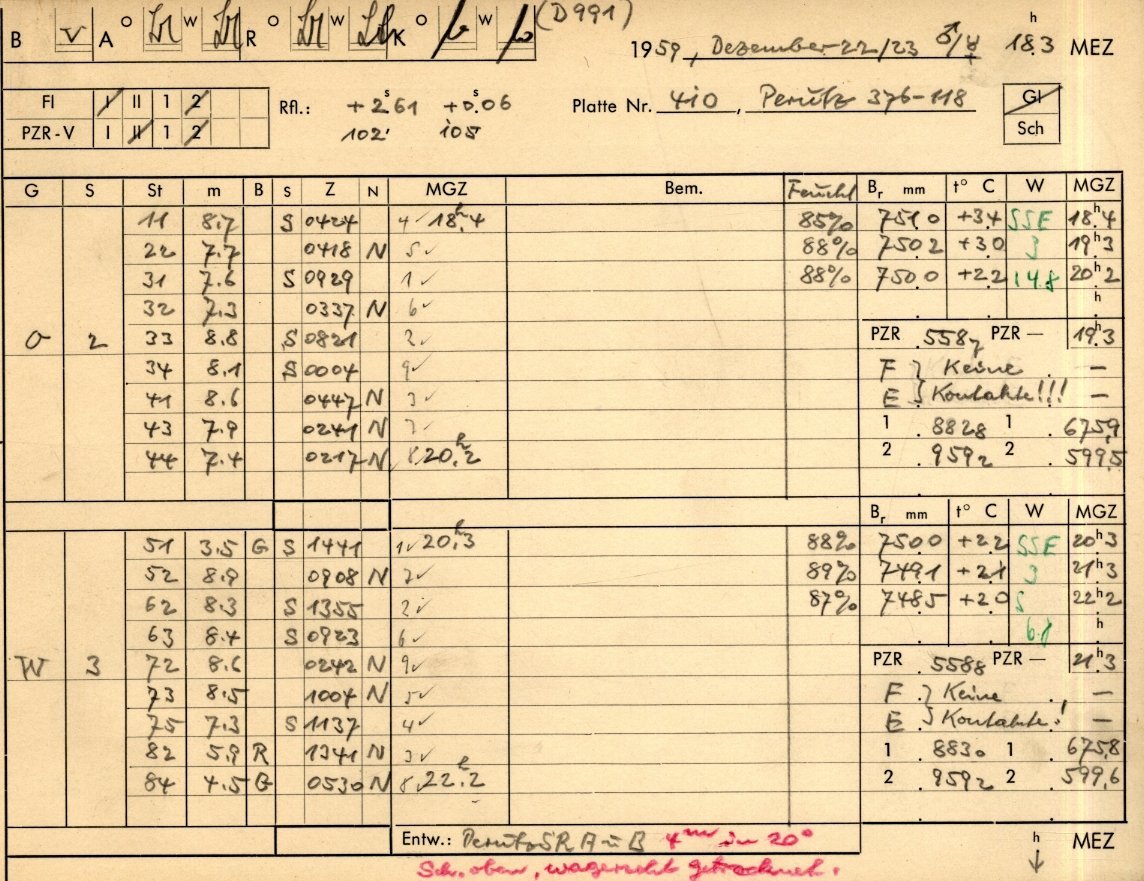 (D991)
B V A O W R O W K O W
1959, Dezember 22/23 ♂/☿ 18.3 h MEZ
FI I II 1 2 Rfl.: +2.s61 +0.s06 Platte Nr. 410, Perutz 376-118 Gl
PZR-V I II 1 2 102' 105 Sch
G S St m B S Z N MGZ Bem. Feucht Br mm t° C W MGZ
11 8.7 S 0424 4 ✓ 18.h4 85% 751.0 +3.4 SSE 18h.4
22 7.7 0418 N 5 ✓ 88% 750.2 +3.0 3 19h.3
31 7.6 S 0929 1 ✓ 88% 750.0 +2.2 14.8 20h.2
32 7.3 0337 N 6 ✓ h
O 2 33 8.8 S 0821 2 ✓ PZR .5587 PZR — 19h.3
34 8.1 S 0004 9 ✓ F } Keine —
41 8.6 0447 N 3 ✓ E } Kontakte!!! —
43 7.9 0241 N 7 ✓ 1 .8828 1 .675,9
44 7.4 0217 N 8 20.h2 2 .9592 2 .599,5
Br mm t° C W MGZ
51 3.5 G S 1441 1 ✓ 20.h3 88% 750.0 +2.2 SSE 20h.3
52 8.9 0908 N 7 ✓ 89% 749.1 +2.1 3 21h.3
62 8.3 S 1355 2 ✓ 87% 748.5 +2.0 S 22h.2
63 8.4 S 0923 6 ✓ 6.8 h
W 3 72 8.6 0242 N 9 ✓ PZR .5588 PZR — 21h.3
73 8.5 1004 N 5 ✓ F } Keine —
75 7.3 S 1137 4 ✓ E } Kontakte! —
82 5.9 R 1341 N 3 ✓ 1 .8830 1 .675,8
84 4.5 G 0530 N 8 22.h2 2 .9592 2 .599,6
Entw.: Perutz SR A u B 4 m in 20° h MEZ
Sch. oben, wagerecht getrocknet.